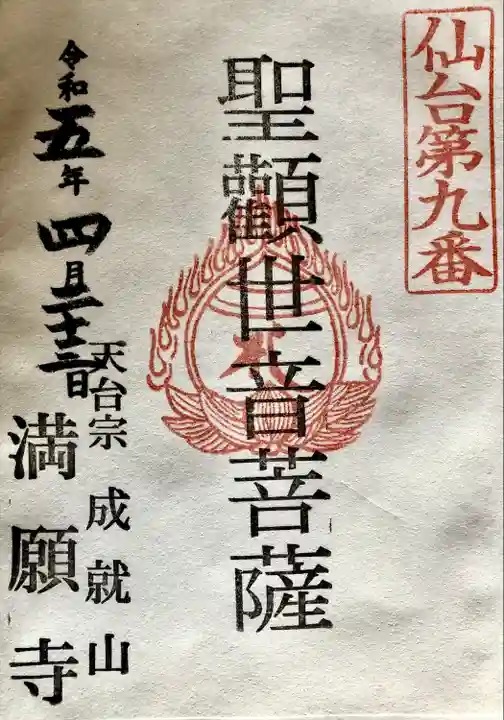 仙台第九番
聖觀世音菩薩
天台宗 成就山
満願寺
令和五年 四月二十二日